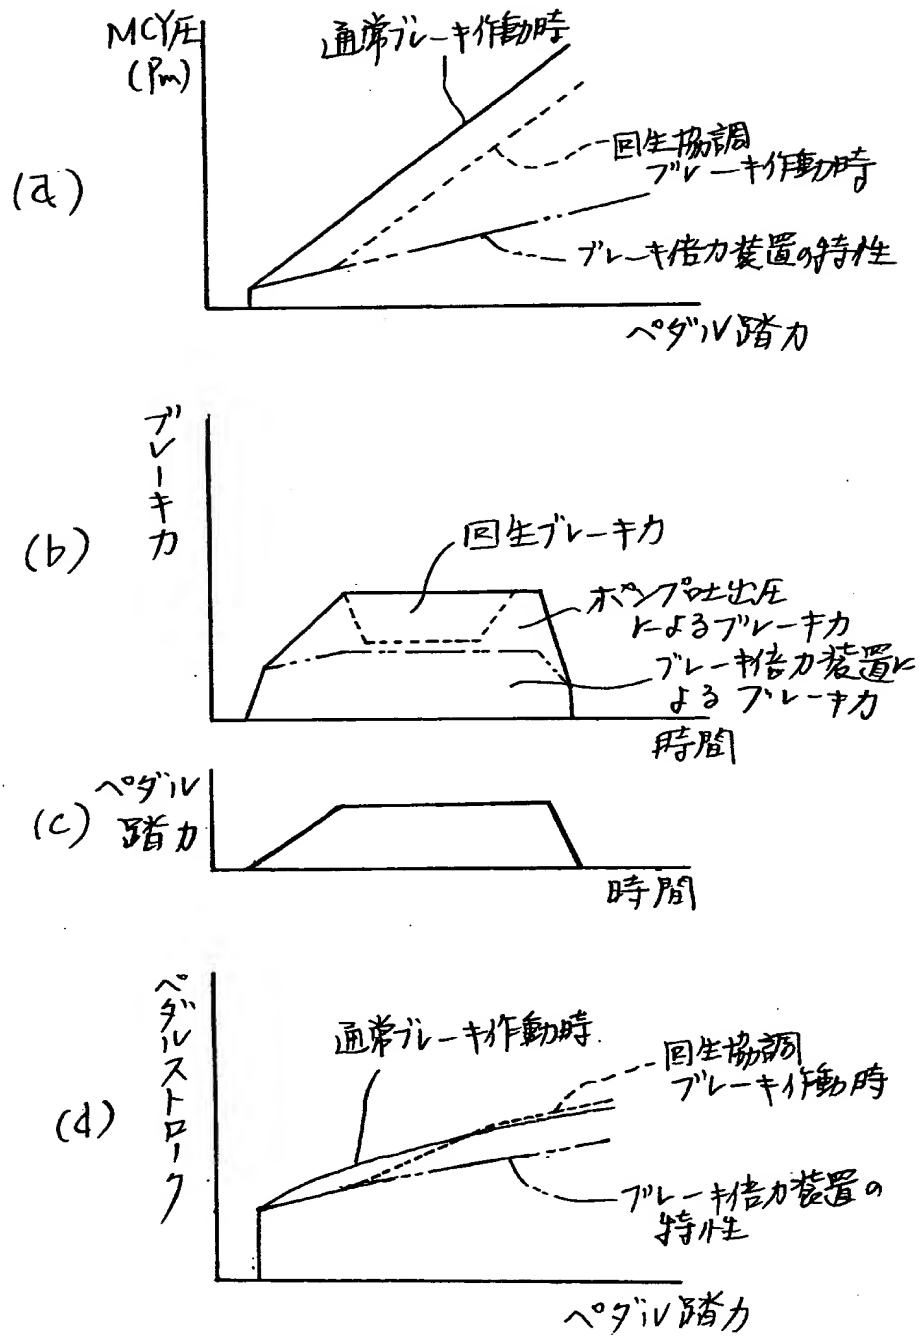 MCY圧
(Pm)
通常ブレーキ作動時
回生協調
ブレーキ作動時
(a)
ブレーキ倍力装置の特性
ペダル踏力
ブレーキ力
(b)
回生ブレーキ力
ポンプ吐出圧
によるブレーキ力
ブレーキ倍力装置に
よるブレーキ力
時間
(c)
ペダル
踏力
時間
ペダルストローク
通常ブレーキ作動時
回生協調
ブレーキ作動時
(d)
ブレーキ倍力装置の
特性
ペダル踏力